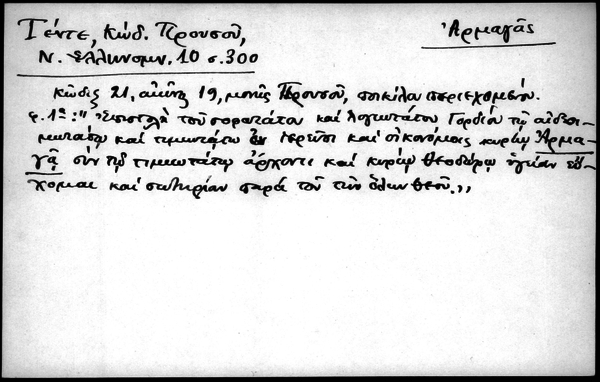 Γέντε, Κώδ. Προυσοῦ,
Ἀρμαγᾶς
Ν. Ἑλληνομν. 10 σ. 300
Κῶδιξ 21, αἰῶνος 19, μονῆς Προυσοῦ, ποικίλου περιεχομένου.
φ. 1α: "Ἐπιστολὴ τοῦ σοφωτάτου καὶ λογιωτάτου Γορδίου τῷ αἰδεσι-
μωτάτῳ καὶ τιμιωτάτῳ ἐν ἱερεῦσι καὶ οἰκονόμοις κυρίῳ Ἀρμα-
γᾷ σὺν τῷ τιμιωτάτῳ ἄρχοντι καὶ κυρίῳ Θεοδώρῳ ὑγείαν εὔ-
χομαι καὶ σωτηρίαν παρὰ τοῦ τῶν ὅλων Θεοῦ.,,